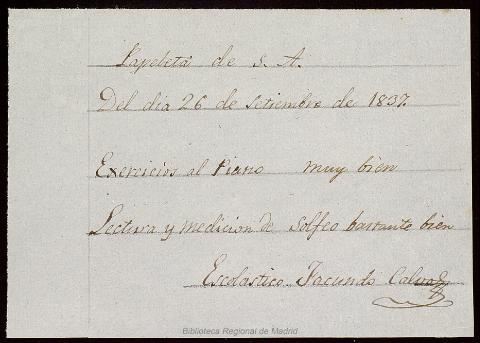 Papeleta de S. A.
Del dia 26 de Setiembre de 1837.
Exercicios al Piano muy bien
Lectura y medicion de Solfeo bastante bien
Escolastico Facundo Calvo
Biblioteca Regional de Madrid